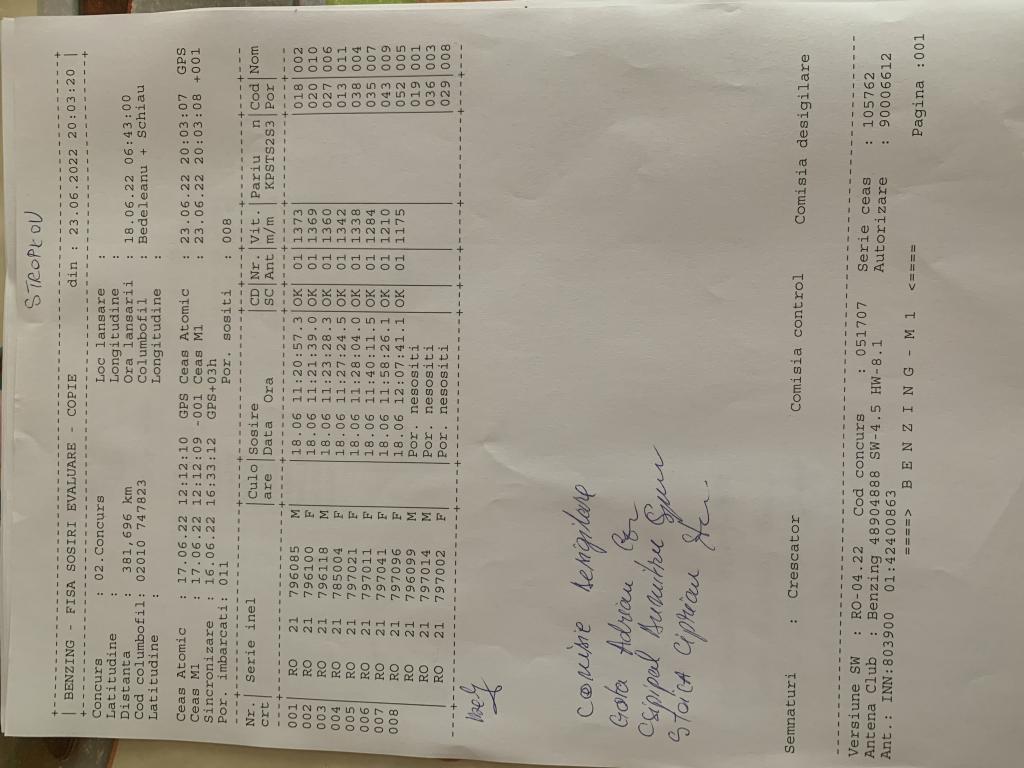 STROPKOV
+-----------------------------------------------------------------------+
| BENZING - FISA SOSIRI EVALUARE - COPIE din : 23.06.2022 20:03:20 |
+-----------------------------------------------------------------------+
Concurs : 02.Concurs Loc lansare :
Latitudine : Longitudine :
Distanta : 381,696 km Ora lansarii : 18.06.22 06:43:00
Cod columbofil: 02010 747823 Columbofil : Bedeleanu + Schiau
Latitudine : Longitudine :
Ceas Atomic : 17.06.22 12:12:10 GPS Ceas Atomic : 23.06.22 20:03:07 GPS
Ceas M1 : 17.06.22 12:12:09 -001 Ceas M1 : 23.06.22 20:03:08 +001
Sincronizare : 16.06.22 16:33:12 GPS+03h
Por. imbarcati: 011 Por. sositi : 008
Nr. | Serie inel |Culo|Sosire |CD|Nr.|Vit.|Pariu n|Cod|Nom
crt| |are |Data Ora |SC|Ant|m/m |KPSTS2S3|Por|
001 | RO 21 796085 M | |18.06 11:20:57.3|OK| 01|1373| |018|002
002 | RO 21 796100 F | |18.06 11:21:39.0|OK| 01|1369| |020|010
003 | RO 21 796118 M | |18.06 11:23:28.3|OK| 01|1360| |027|006
004 | RO 21 785004 F | |18.06 11:27:24.5|OK| 01|1342| |013|011
005 | RO 21 797021 F | |18.06 11:28:04.0|OK| 01|1338| |038|004
006 | RO 21 797011 F | |18.06 11:40:11.5|OK| 01|1284| |035|007
007 | RO 21 797041 F | |18.06 11:58:26.1|OK| 01|1210| |043|009
008 | RO 21 797096 F | |18.06 12:07:41.1|OK| 01|1175| |052|005
| RO 21 796099 M | |Por. nesositi | | | | |019|001
| RO 21 797014 M | |Por. nesositi | | | | |036|003
| RO 21 797002 F | |Por. nesositi | | | | |029|008
Comisie Desigilare
Gota Adrian
Csipipal Dumitru
Stoica Ciprian
Semnaturi : Crescator Comisia control Comisia desigilare
Versiune SW : RO-04.22 Cod concurs : 051707 Serie ceas : 105762
Antena Club : Benzing 48904888 SW-4.5 HW-8.1 Autorizare : 90006612
Ant.: INN:803900 01:42400863
====> B E N Z I N G - M 1 <====
Pagina :001